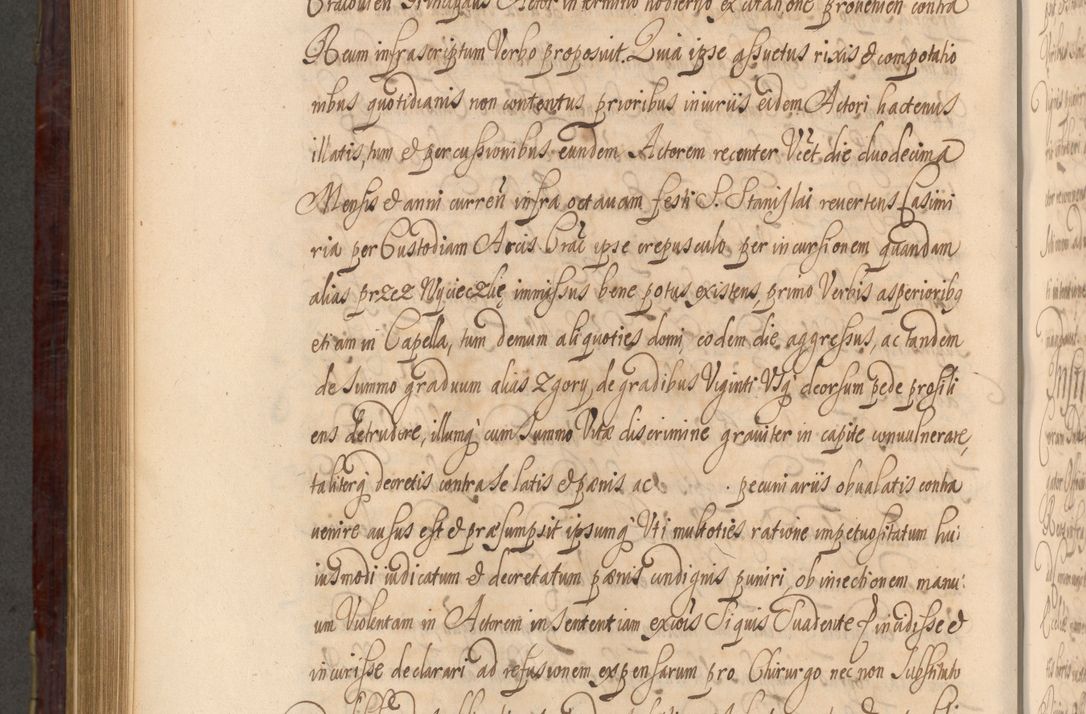 Reum infrascriptum Verbo proposuit. Quia ipse assuetus rixis et compotatio
nibus quotidianis non contentus prioribus iniuriis eidem Actori hactenus
illatis, tum et percussionibus eundem Actorem recenter Vcet die duodecima
Mensis et anni currēn infra octauam festi S. Stanislai reuertens Casimi
ria per Custodiam Arcis Crac ipse crepusculo per incursionem quandam
alias przez Wycieczkę immissus bene potus existens primo Verbis asperioribq
etiam in Capella, tum demum aliquoties domi eodem die aggressus, ac tandem
de summo graduum alias z gory, de gradibus Viginti Vsq deorsum pede prosili
ens detrudere, illumq cum summo Vitæ discrimine grauiter in capite conuulnerare,
taliterq decretis contra se latis et pænis ac pecuniariis obualatis contra
uenire ausus est et præsumpsit ipsumq Vti multoties ratione impetuositatum hu:
iusmodi iudicatum et decretatum pænis condignis puniri ob iniectionem manu:
um Violentam in Actorem in sententiam excois Siquis Suadente incidisse et
incurisse declarari ad refusionem expensarum pro Chirurgo nec non Substituto